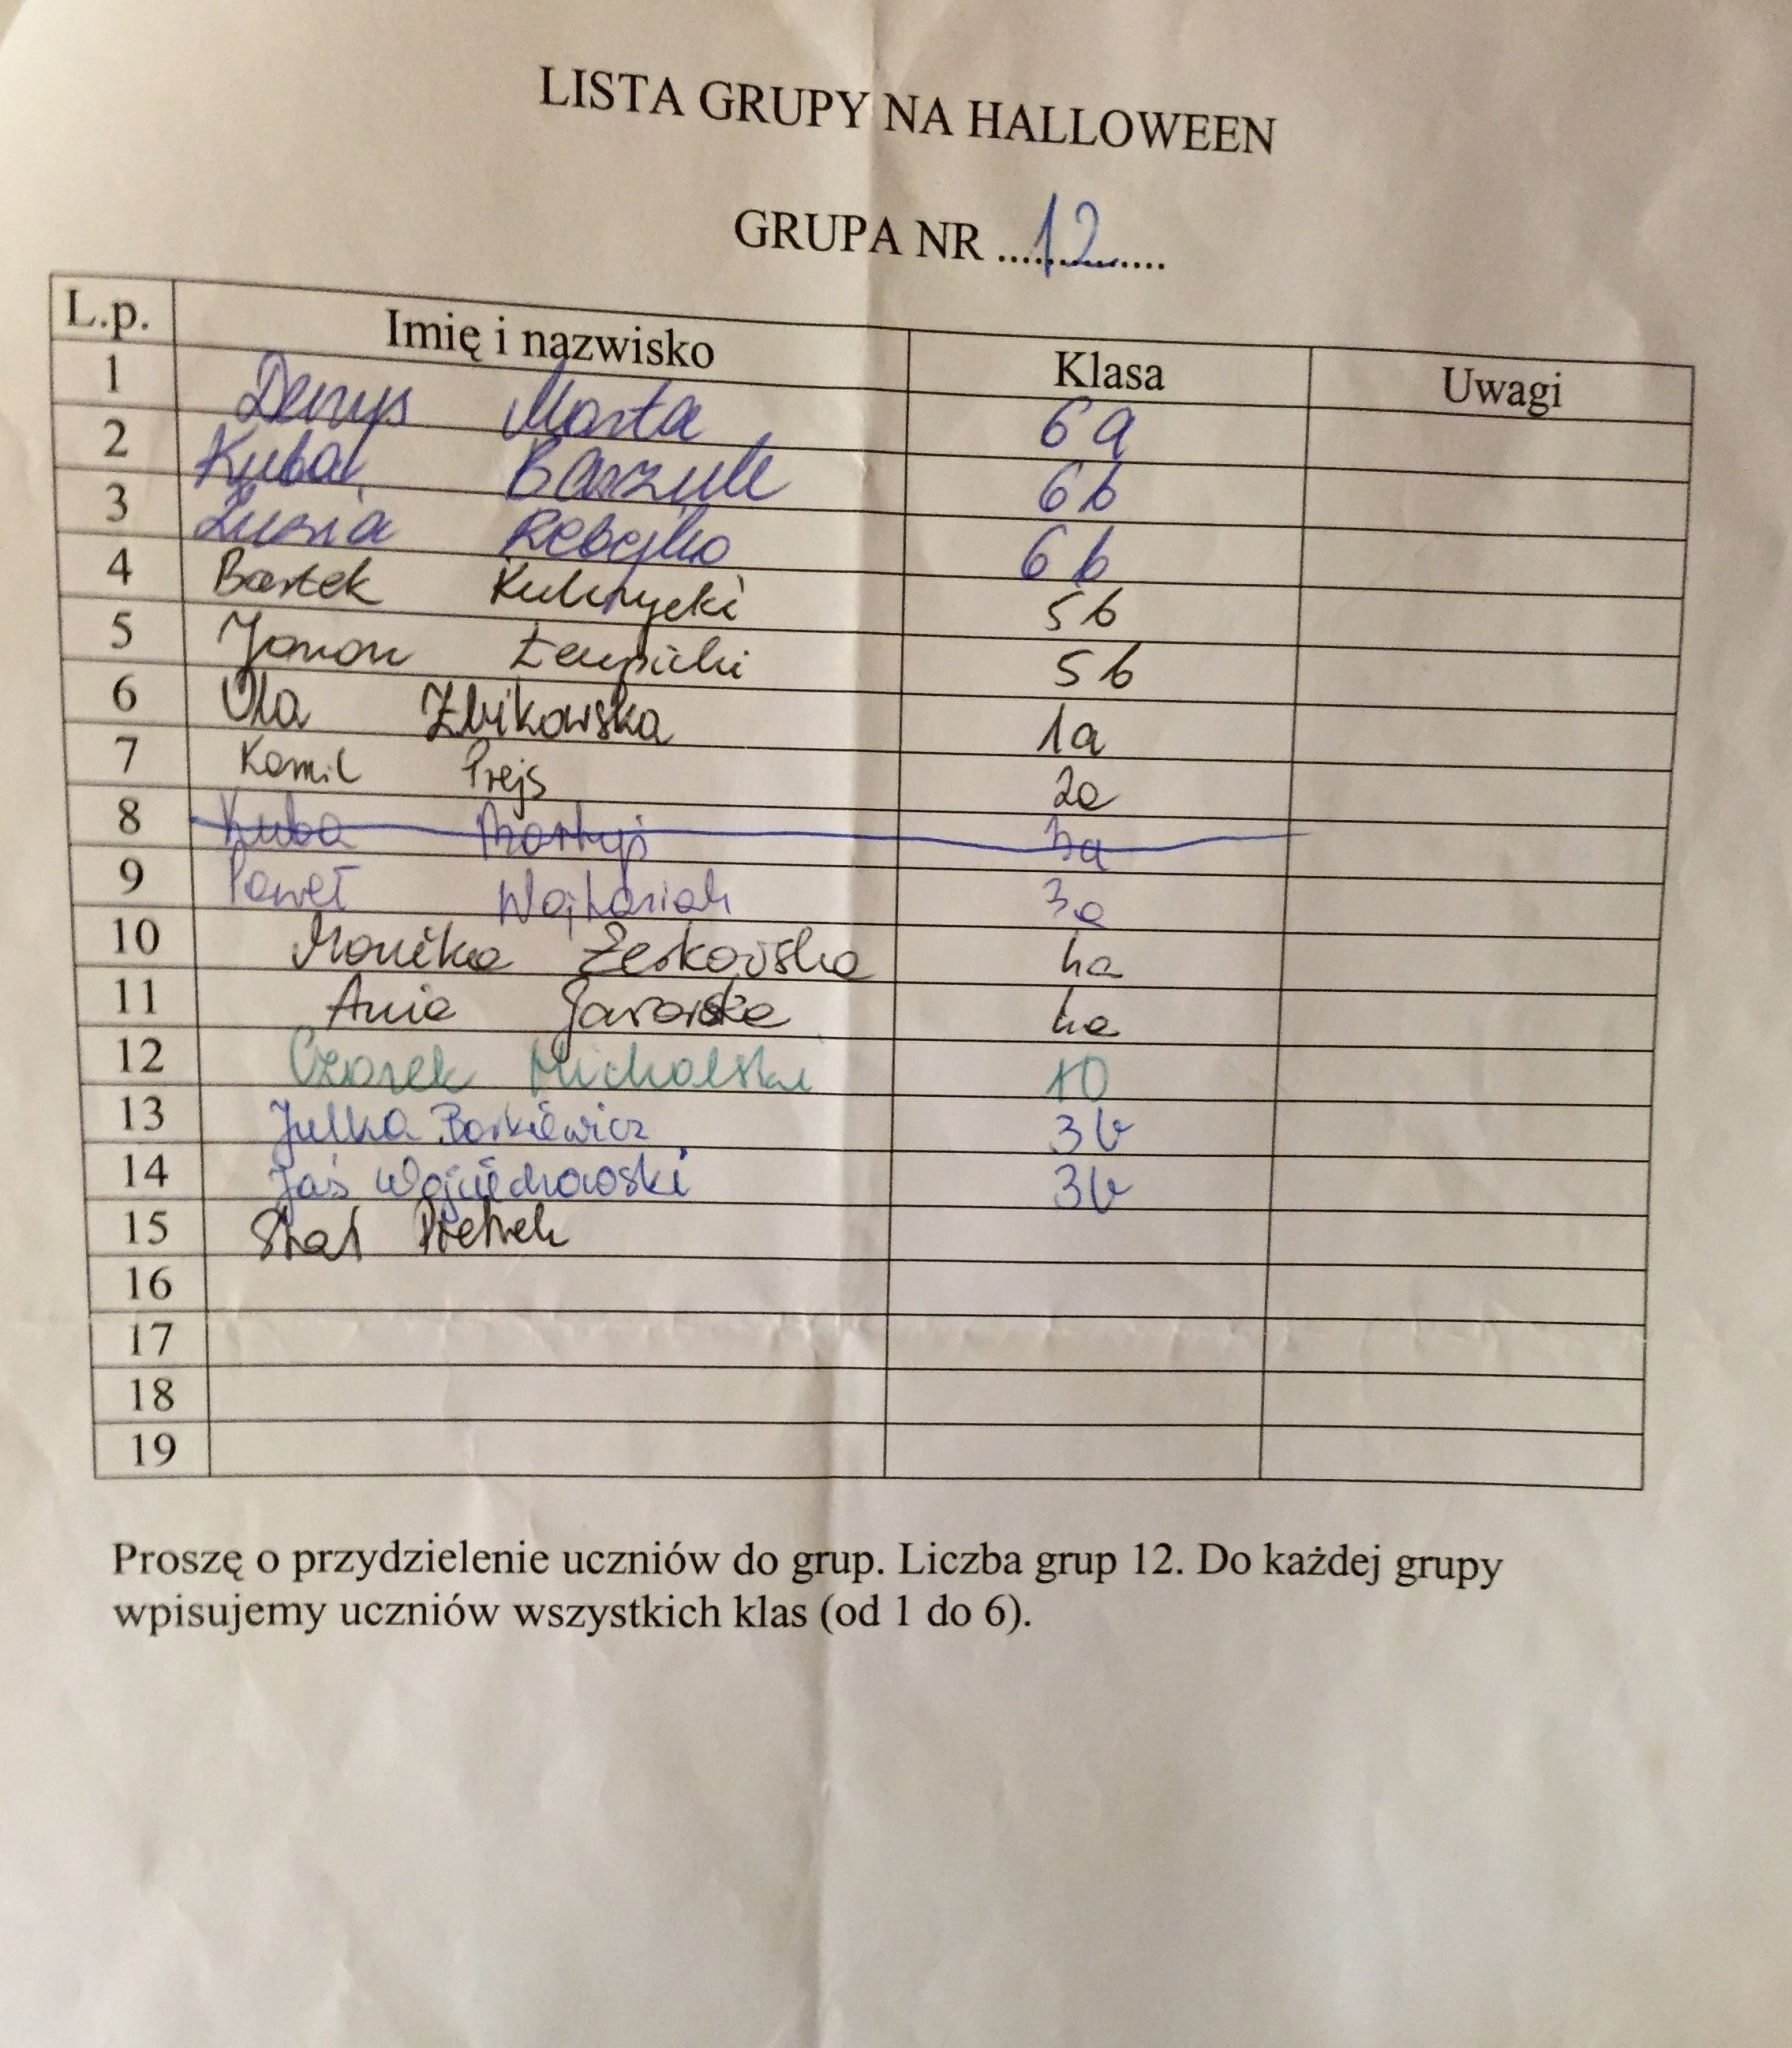 LISTA GRUPY NA HALLOWEEN
GRUPA NR ....12....
L.p. Imię i nazwisko Klasa Uwagi
1 Denys Marta 6a
2 Kuba 6b
3 Zuzia Rebejko 6b
4 Bartek 5b
5 5b
6 Ola Żbikowska 1a
7 Kamil Prejs 2a
8 Kuba 3a
9 Paweł 3a
10 Monika Żerkowska 4a
11 Ania 4a
12 Czarek Michalski 10
13 Julka Borkiewicz 3b
14 Jaś Wojciechowski 3b
15 Pietrek
16
17
18
19
Proszę o przydzielenie uczniów do grup. Liczba grup 12. Do każdej grupy
wpisujemy uczniów wszystkich klas (od 1 do 6).